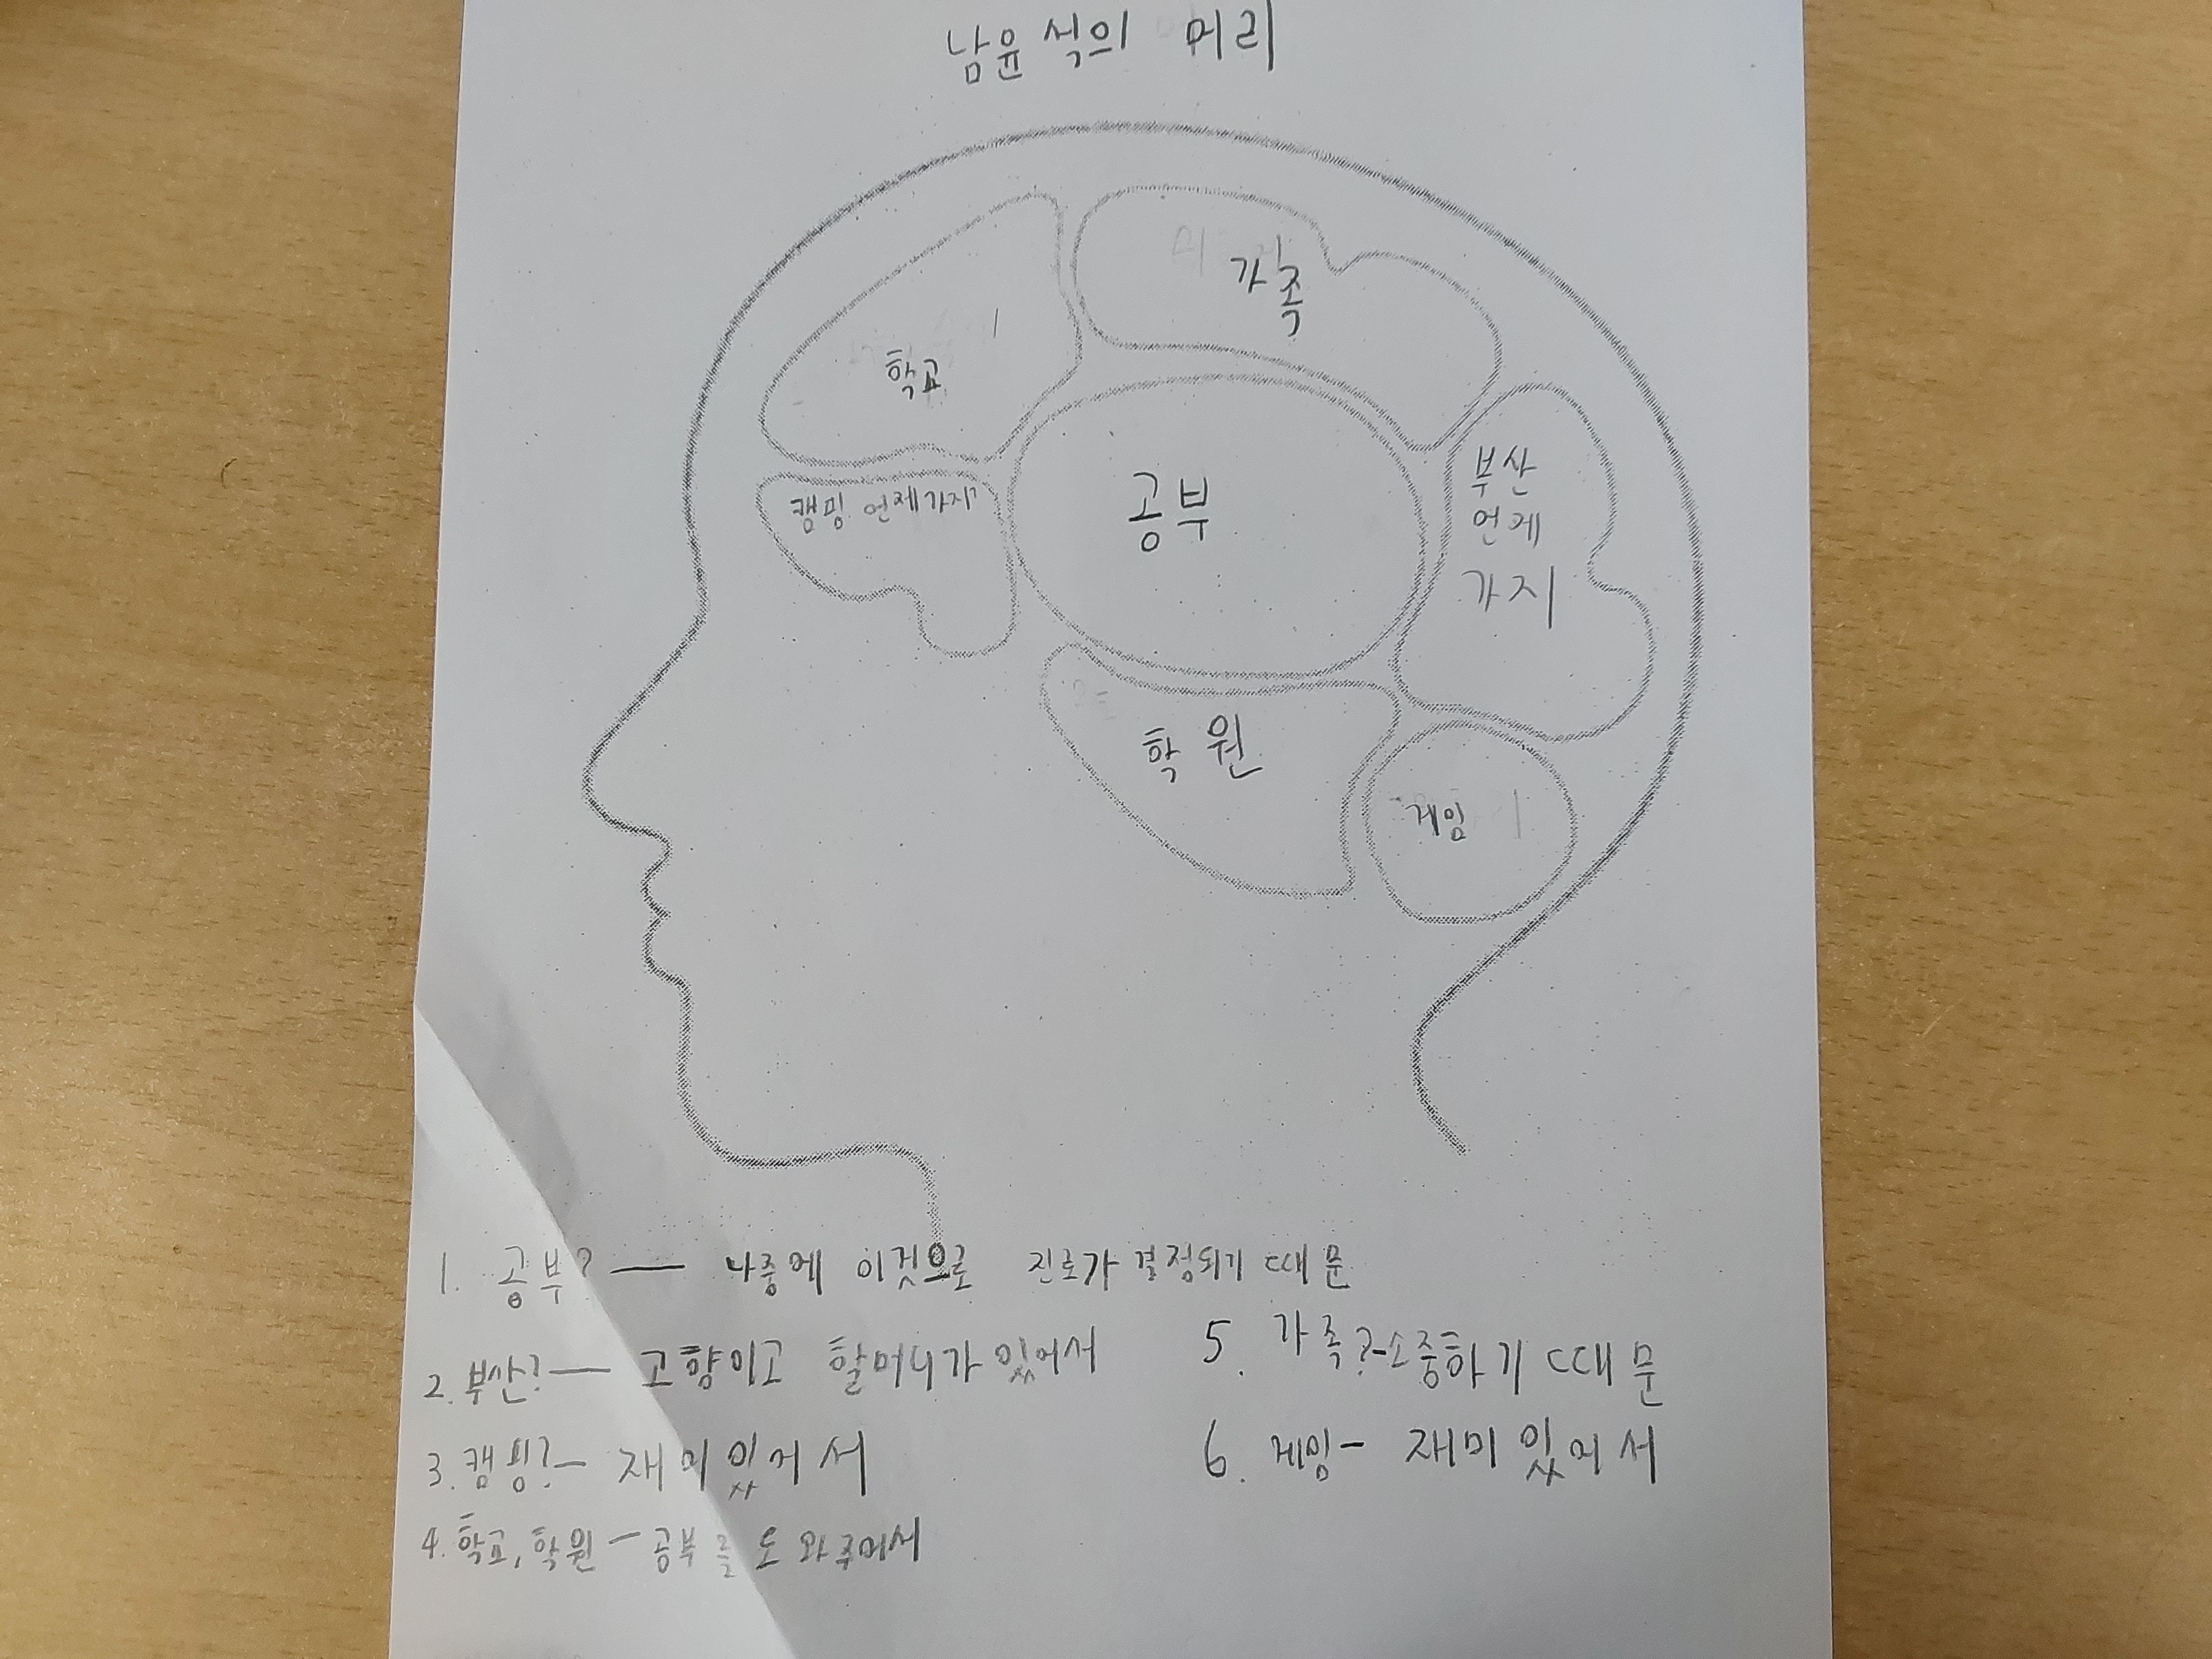 남윤식의 머리
가족
학교
캠핑 언제가지?
공부
부산
언제
가지
학원
게임
1. 공부? — 나중에 이것으로 진로가 결정되기 때문
2. 부산? — 고향이고 할머니가 있어서
3. 캠핑? - 재미있어서
4. 학교, 학원 - 공부를 도와주어서
5. 가족? - 소중하기 때문
6. 게임 - 재미있어서